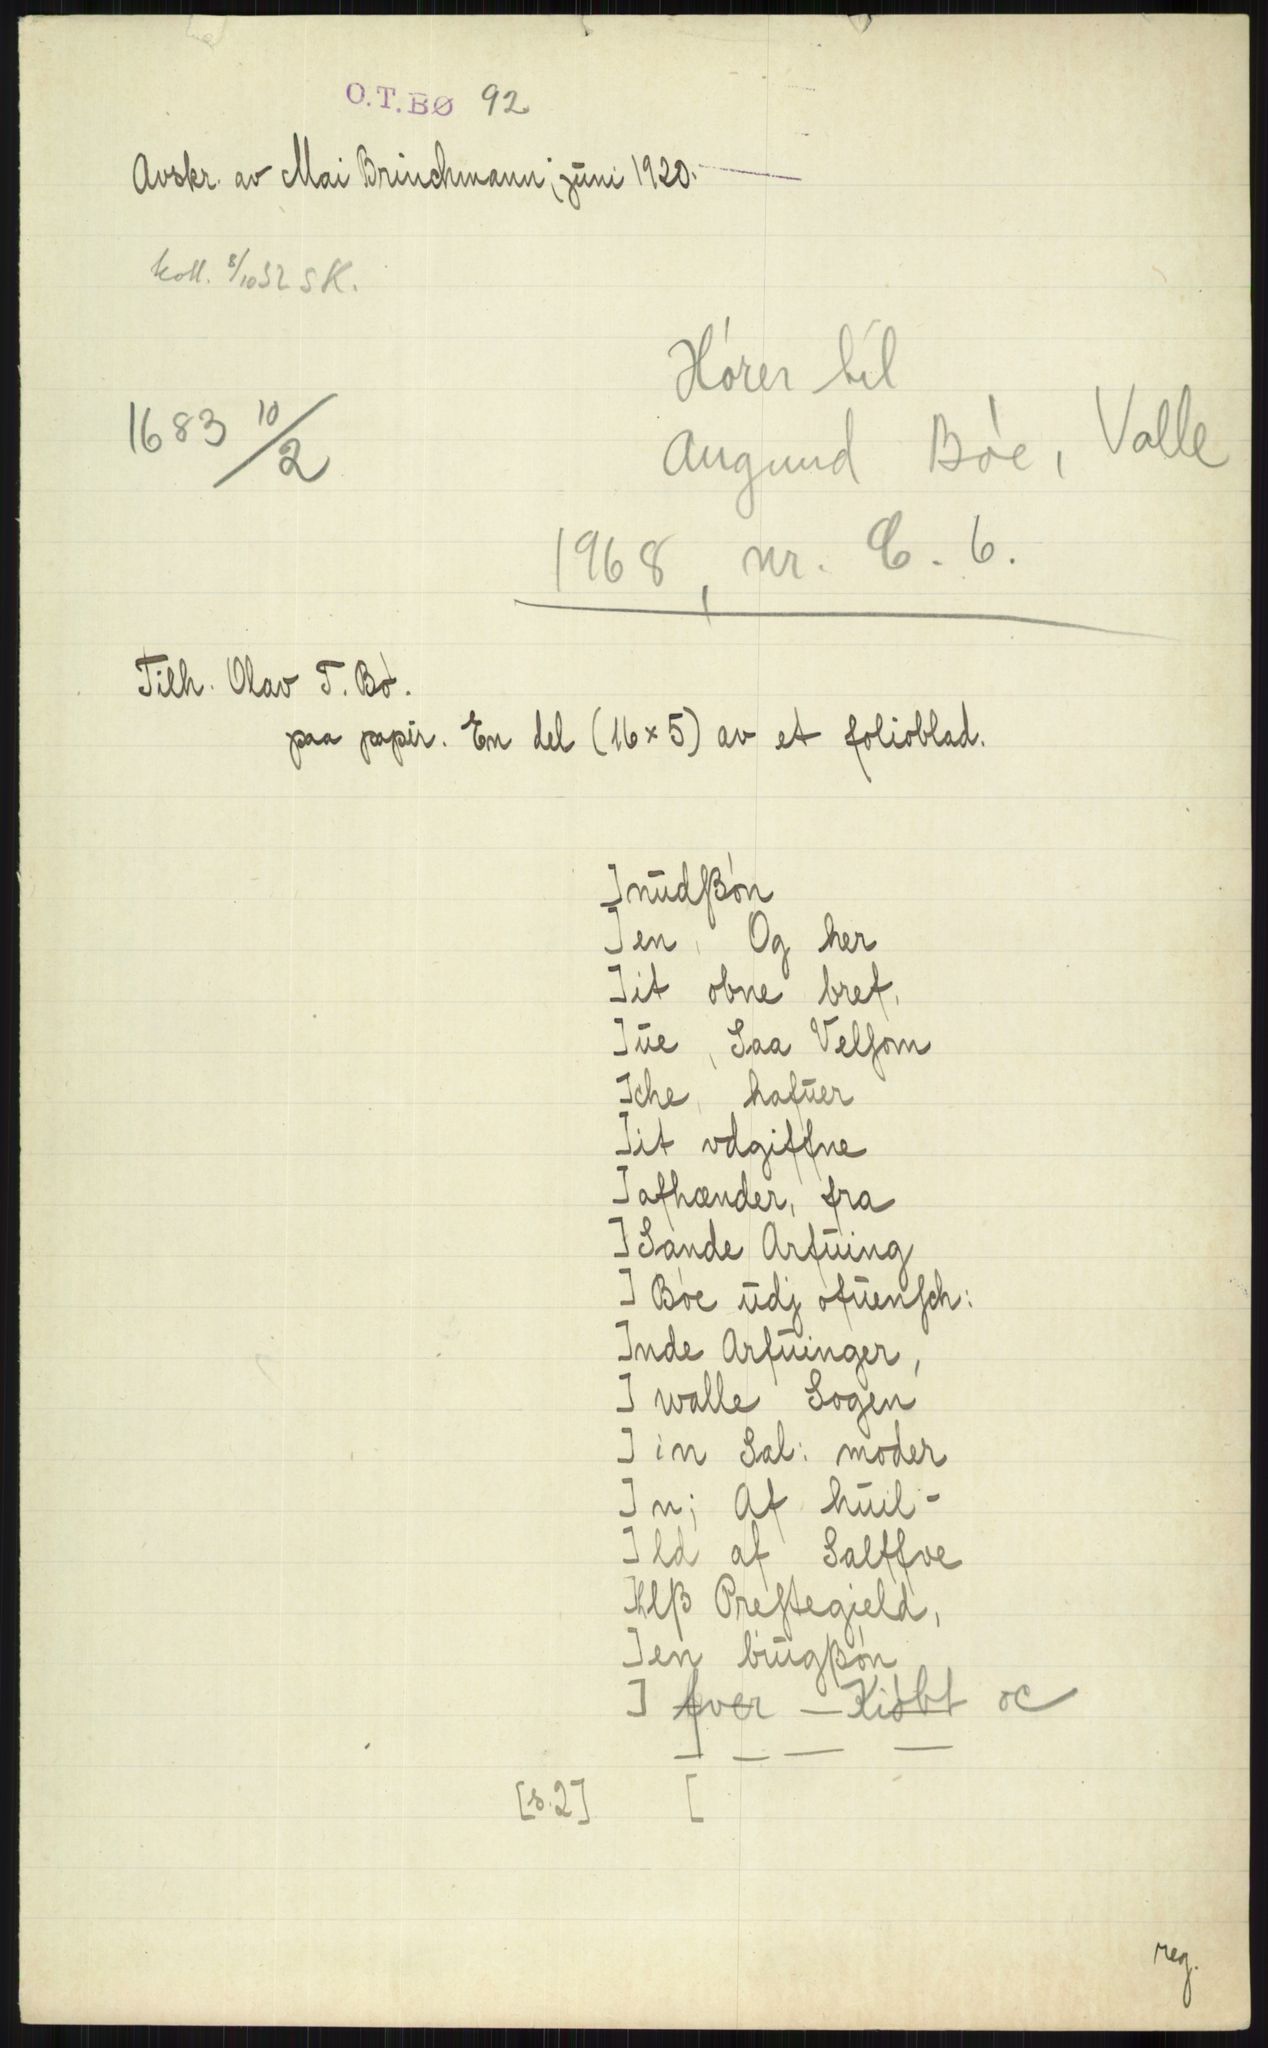 O.T.BØ 92
Avskr. av Mai Brinchmann, juni 1920.
koll. 8/10 52 SK.
Hórer til
1683 10/2
Augund Bóe, Valle
1968, nr. C. 6.
Tilh. Olav T. Bó.
paa papir. En del (16×5) av et folioblad.
]nŭdſßón
]en, Og her
]it obne bref,
]ŭe, Saa Velſom
]che, hafŭer
]it vdgiffne
]afhænder, fra
]Sande Arfŭing
] Bóe ŭdj ofŭenſch:
]nde Arfŭinger,
] walle Sogen
] in Sal: moder
]n; Af hŭil-
]ld af Salffve
]llß Preſtegield,
]en biŭgßón
] fver — Kióbt oc
] — — —
[s.2] [
reg.